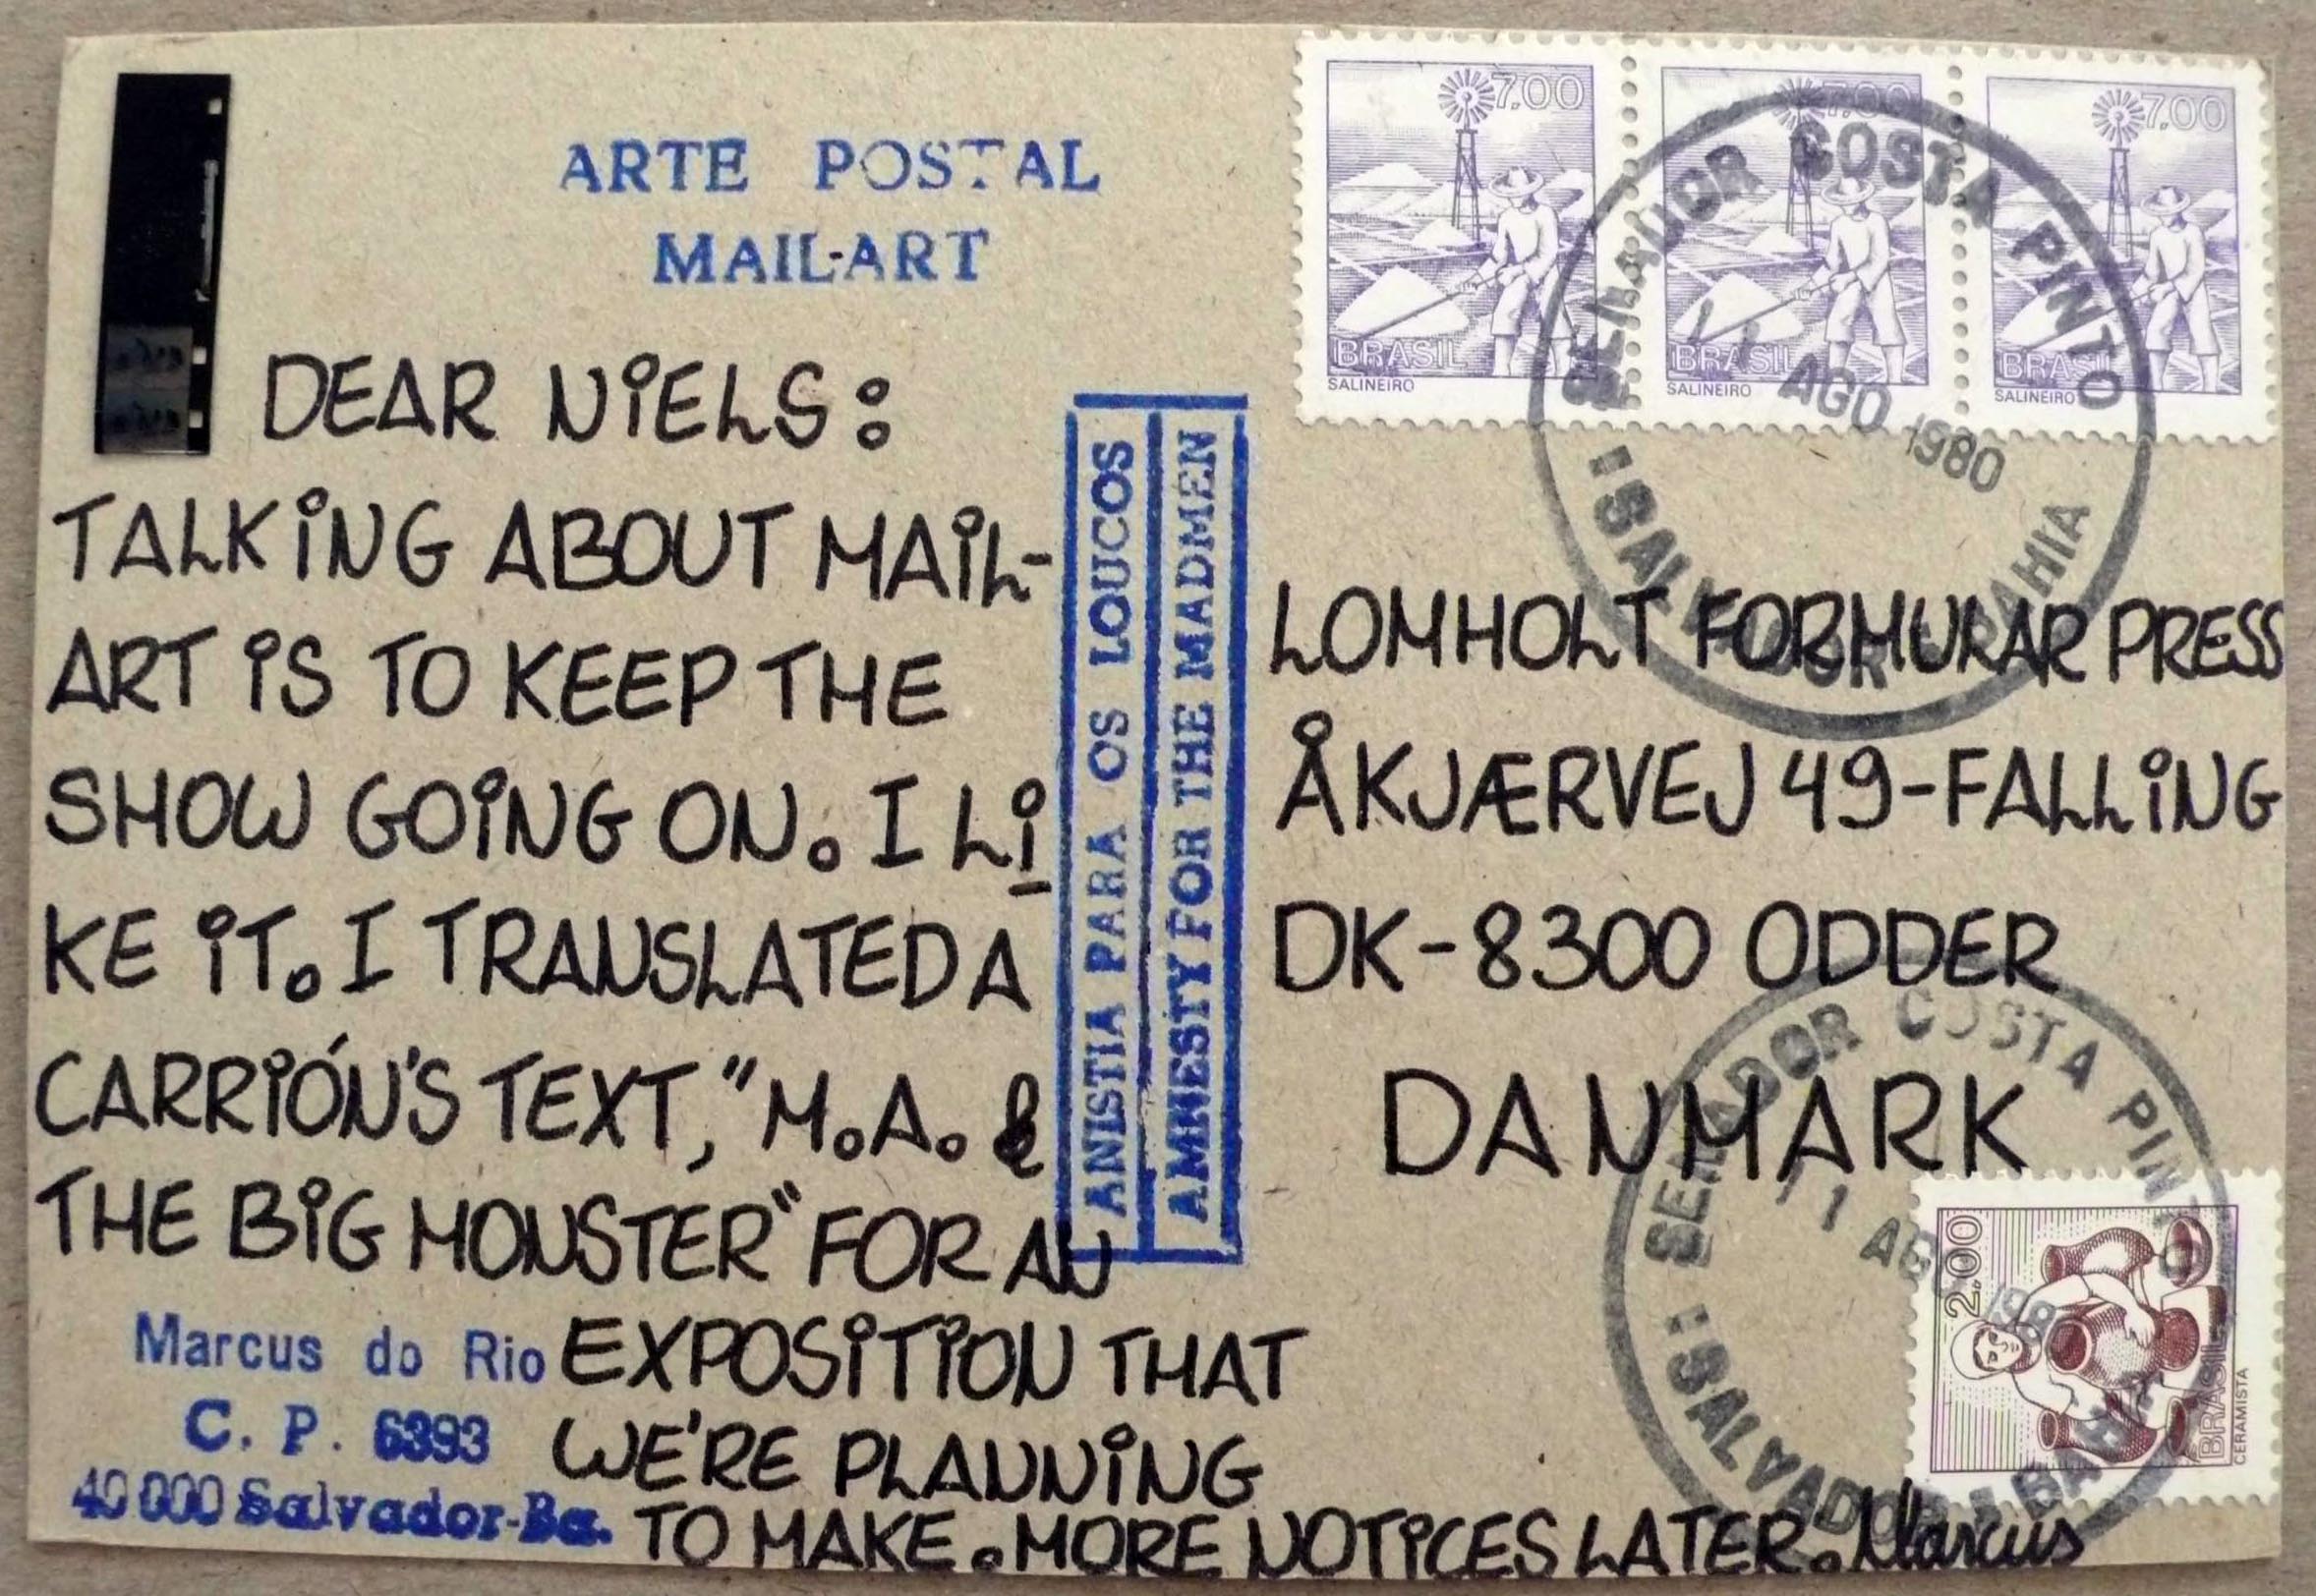 ARTE POSTAL
MAIL-ART
DEAR NIELS:
TALKING ABOUT MAIL-
ART IS TO KEEP THE
SHOW GOING ON. I LI
KE IT. I TRANSLATED A
CARRIÓN'S TEXT, "M.A. &
THE BIG MONSTER" FOR AN
EXPOSITION THAT
WE'RE PLANNING
TO MAKE. MORE NOTICES LATER. Marcus
Marcus do Rio
C. P. 6393
40 000 Salvador-Ba.
ANISTIA PARA OS LOUCOS
AMNESTY FOR THE MADMEN
7,00
BRASIL
SALINEIRO
7,00
BRASIL
SALINEIRO
7,00
BRASIL
SALINEIRO
SENADOR COSTA PINTO
11 AGO 1980
SALVADOR BAHIA
LOMHOLT FORMULAR PRESS
ÅKJÆRVEJ 49-FALLING
DK-8300 ODDER
DANMARK
SENADOR COSTA PINTO
11 AGO 198
SALVADOR BAHIA
2,00
BRASIL
CERAMISTA